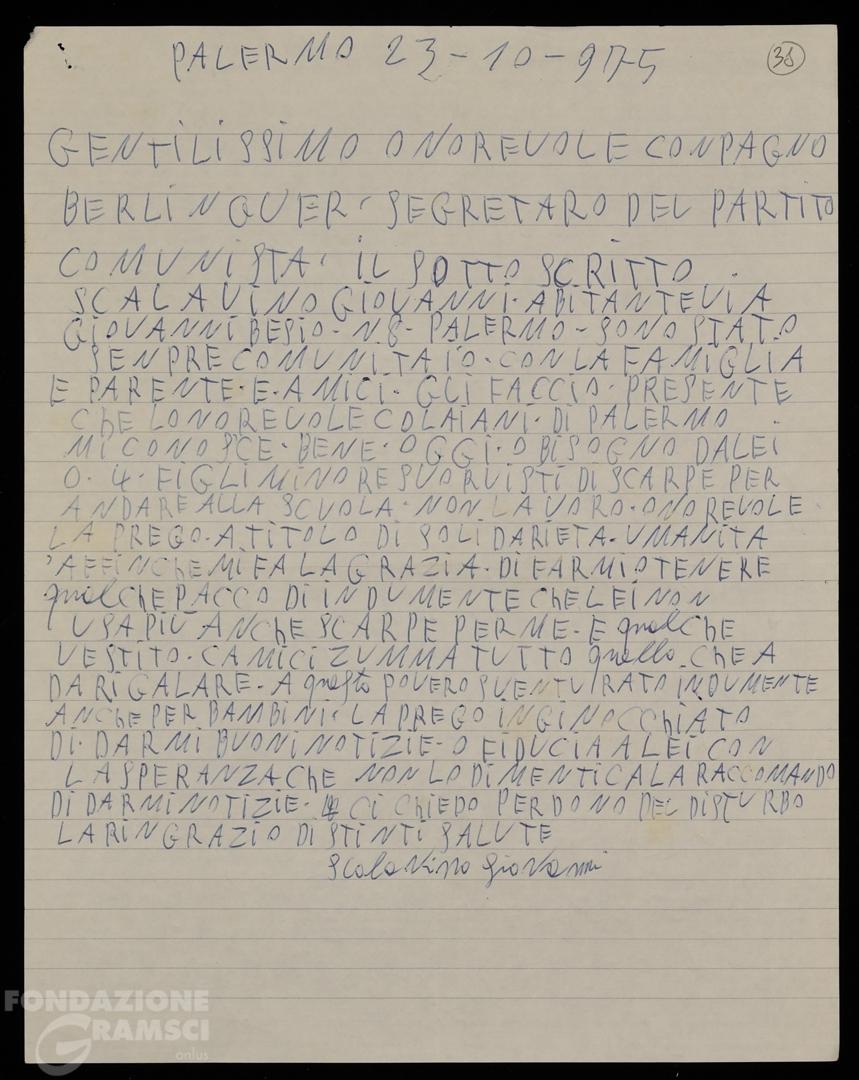 PALERMO 23-10-975
38
GENTILISSIMO ONOREVOLE CONPAGNO
BERLINGUER, SEGRETARO DEL PARTITO
COMUNISTA, IL SOTTO SCRITTO
SCALAVINO GIOVANNI. ABITANTE VIA
GIOVANNI BESIO-N.8-PALERMO-SONO STATO
SENPRE COMUNITAIO. CON LA FAMIGLIA
E PARENTE. E. AMICI. GLI FACCIO. PRESENTE
ChE LONOREVOLE COLAIANI. DI PALERMO
MI CONOSCE. BENE. OGGI. O BISOGNO DA LEI
O. 4. FIGLI MINORE SUORVISTI DI SCARPE PER
ANDARE ALLA SCUOLA. NON LAVORO. ONOREVOLE
LA PREGO. A TITOLO DI SOLIDARIETA. UMANITA
AFFINChE MI FA LA GRAZIA. DI FARMI OTENERE
qualChE PACCO DI INDUMENTE CHE LEI NON
USA PIU ANChE SCARPE PER ME. E qualChE
VESTITO. CAMICI ZUMMA TUTTO quello. CHE A
DA RIGALARE. A questo POVERO SVENTURATO INDUMENTE
ANChE PER BAMBINI. LA PREGO INGINOCChIATO
DI. DARMI BUONI NOTIZIE- O FIDUCIA A LEI CON
LA SPERANZA ChE NON LO DIMENTICA LA RACCOMANDO
DI DARMI NOTIZIE. CI ChIEDO PERDONO DEL DISTURBO
LA RINGRAZIO DISTINTI SALUTE
Scalavino Giovanni
FONDAZIONE
GRAMSCI
onlus